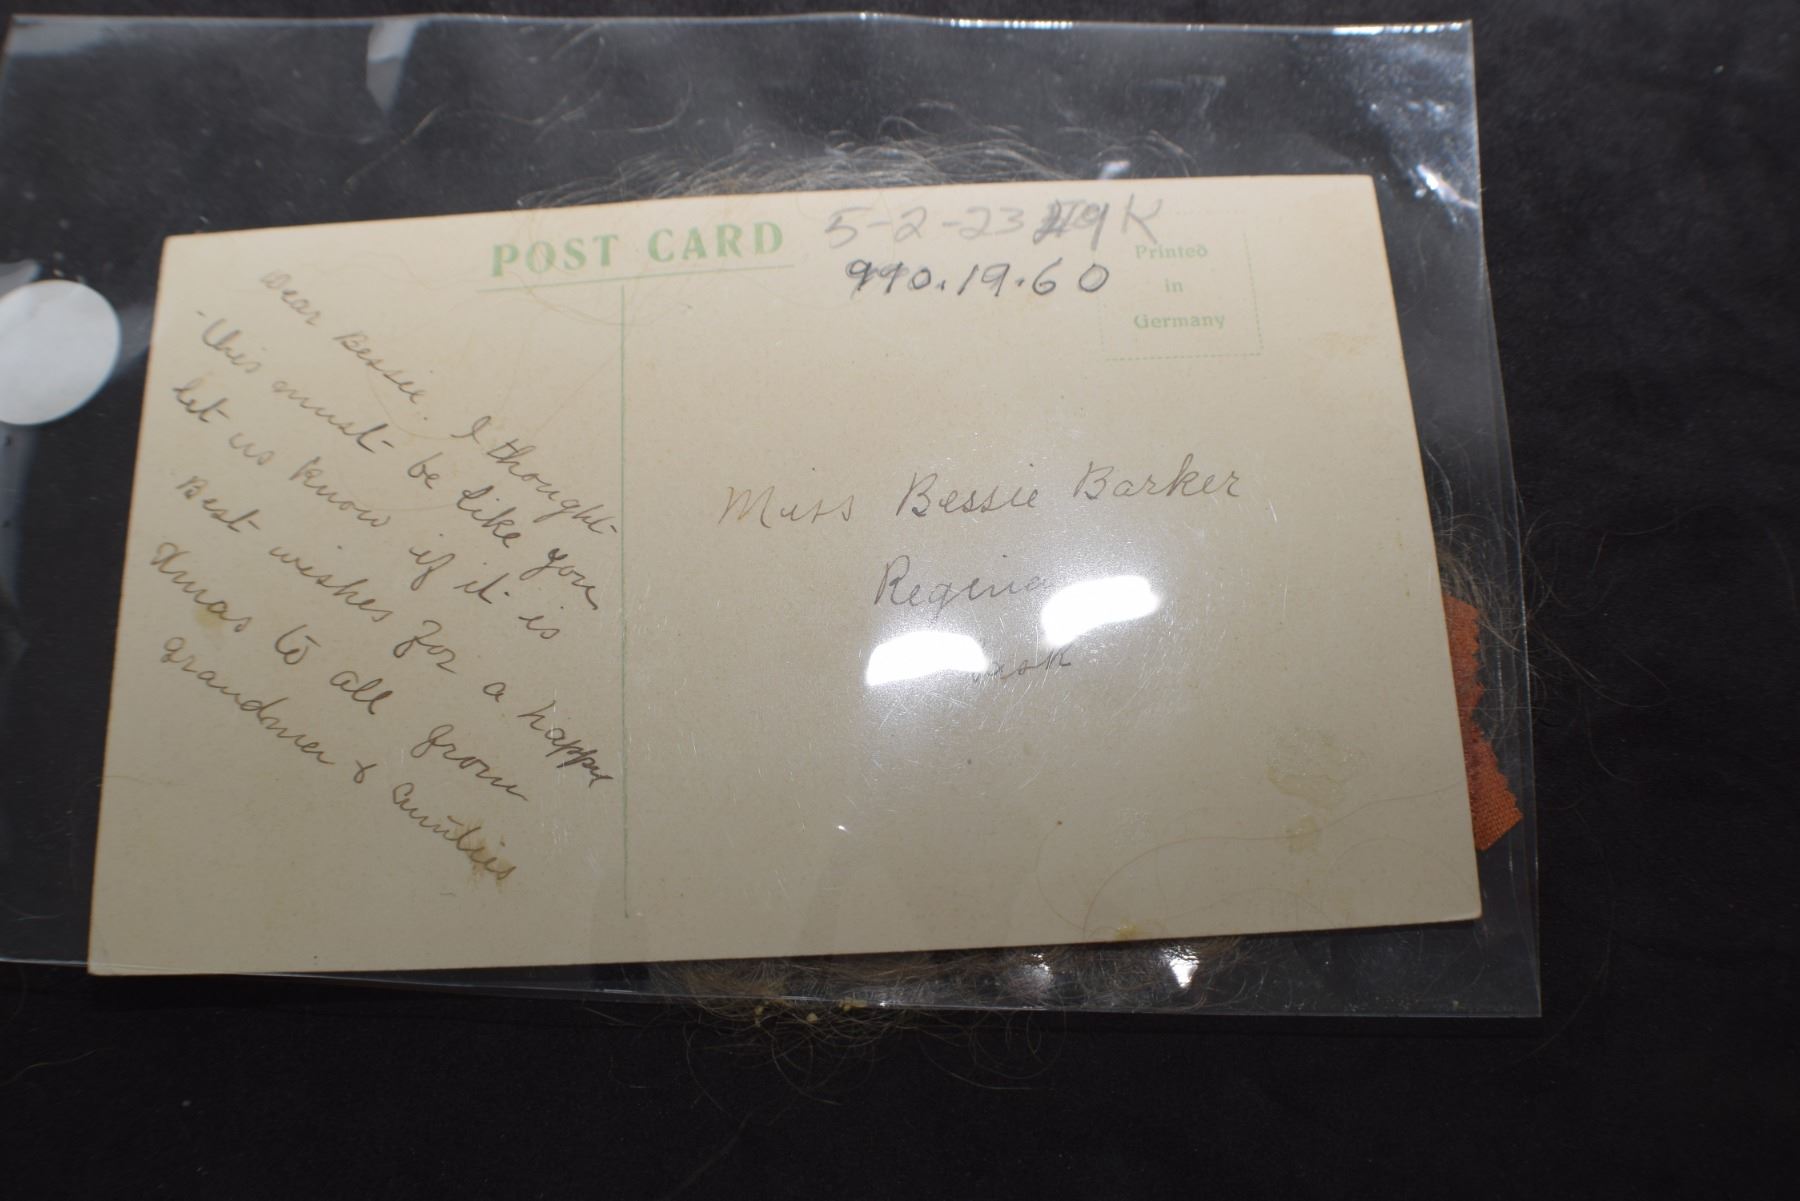 POST CARD
5-2-23 K
990.19.60
Printed
in
Germany
Dear Bessie. I thought
this must be like you
let us know if it is
Best wishes for a happy
Xmas to all from
grandma & aunties
Miss Bessie Barker
Regina
Sask